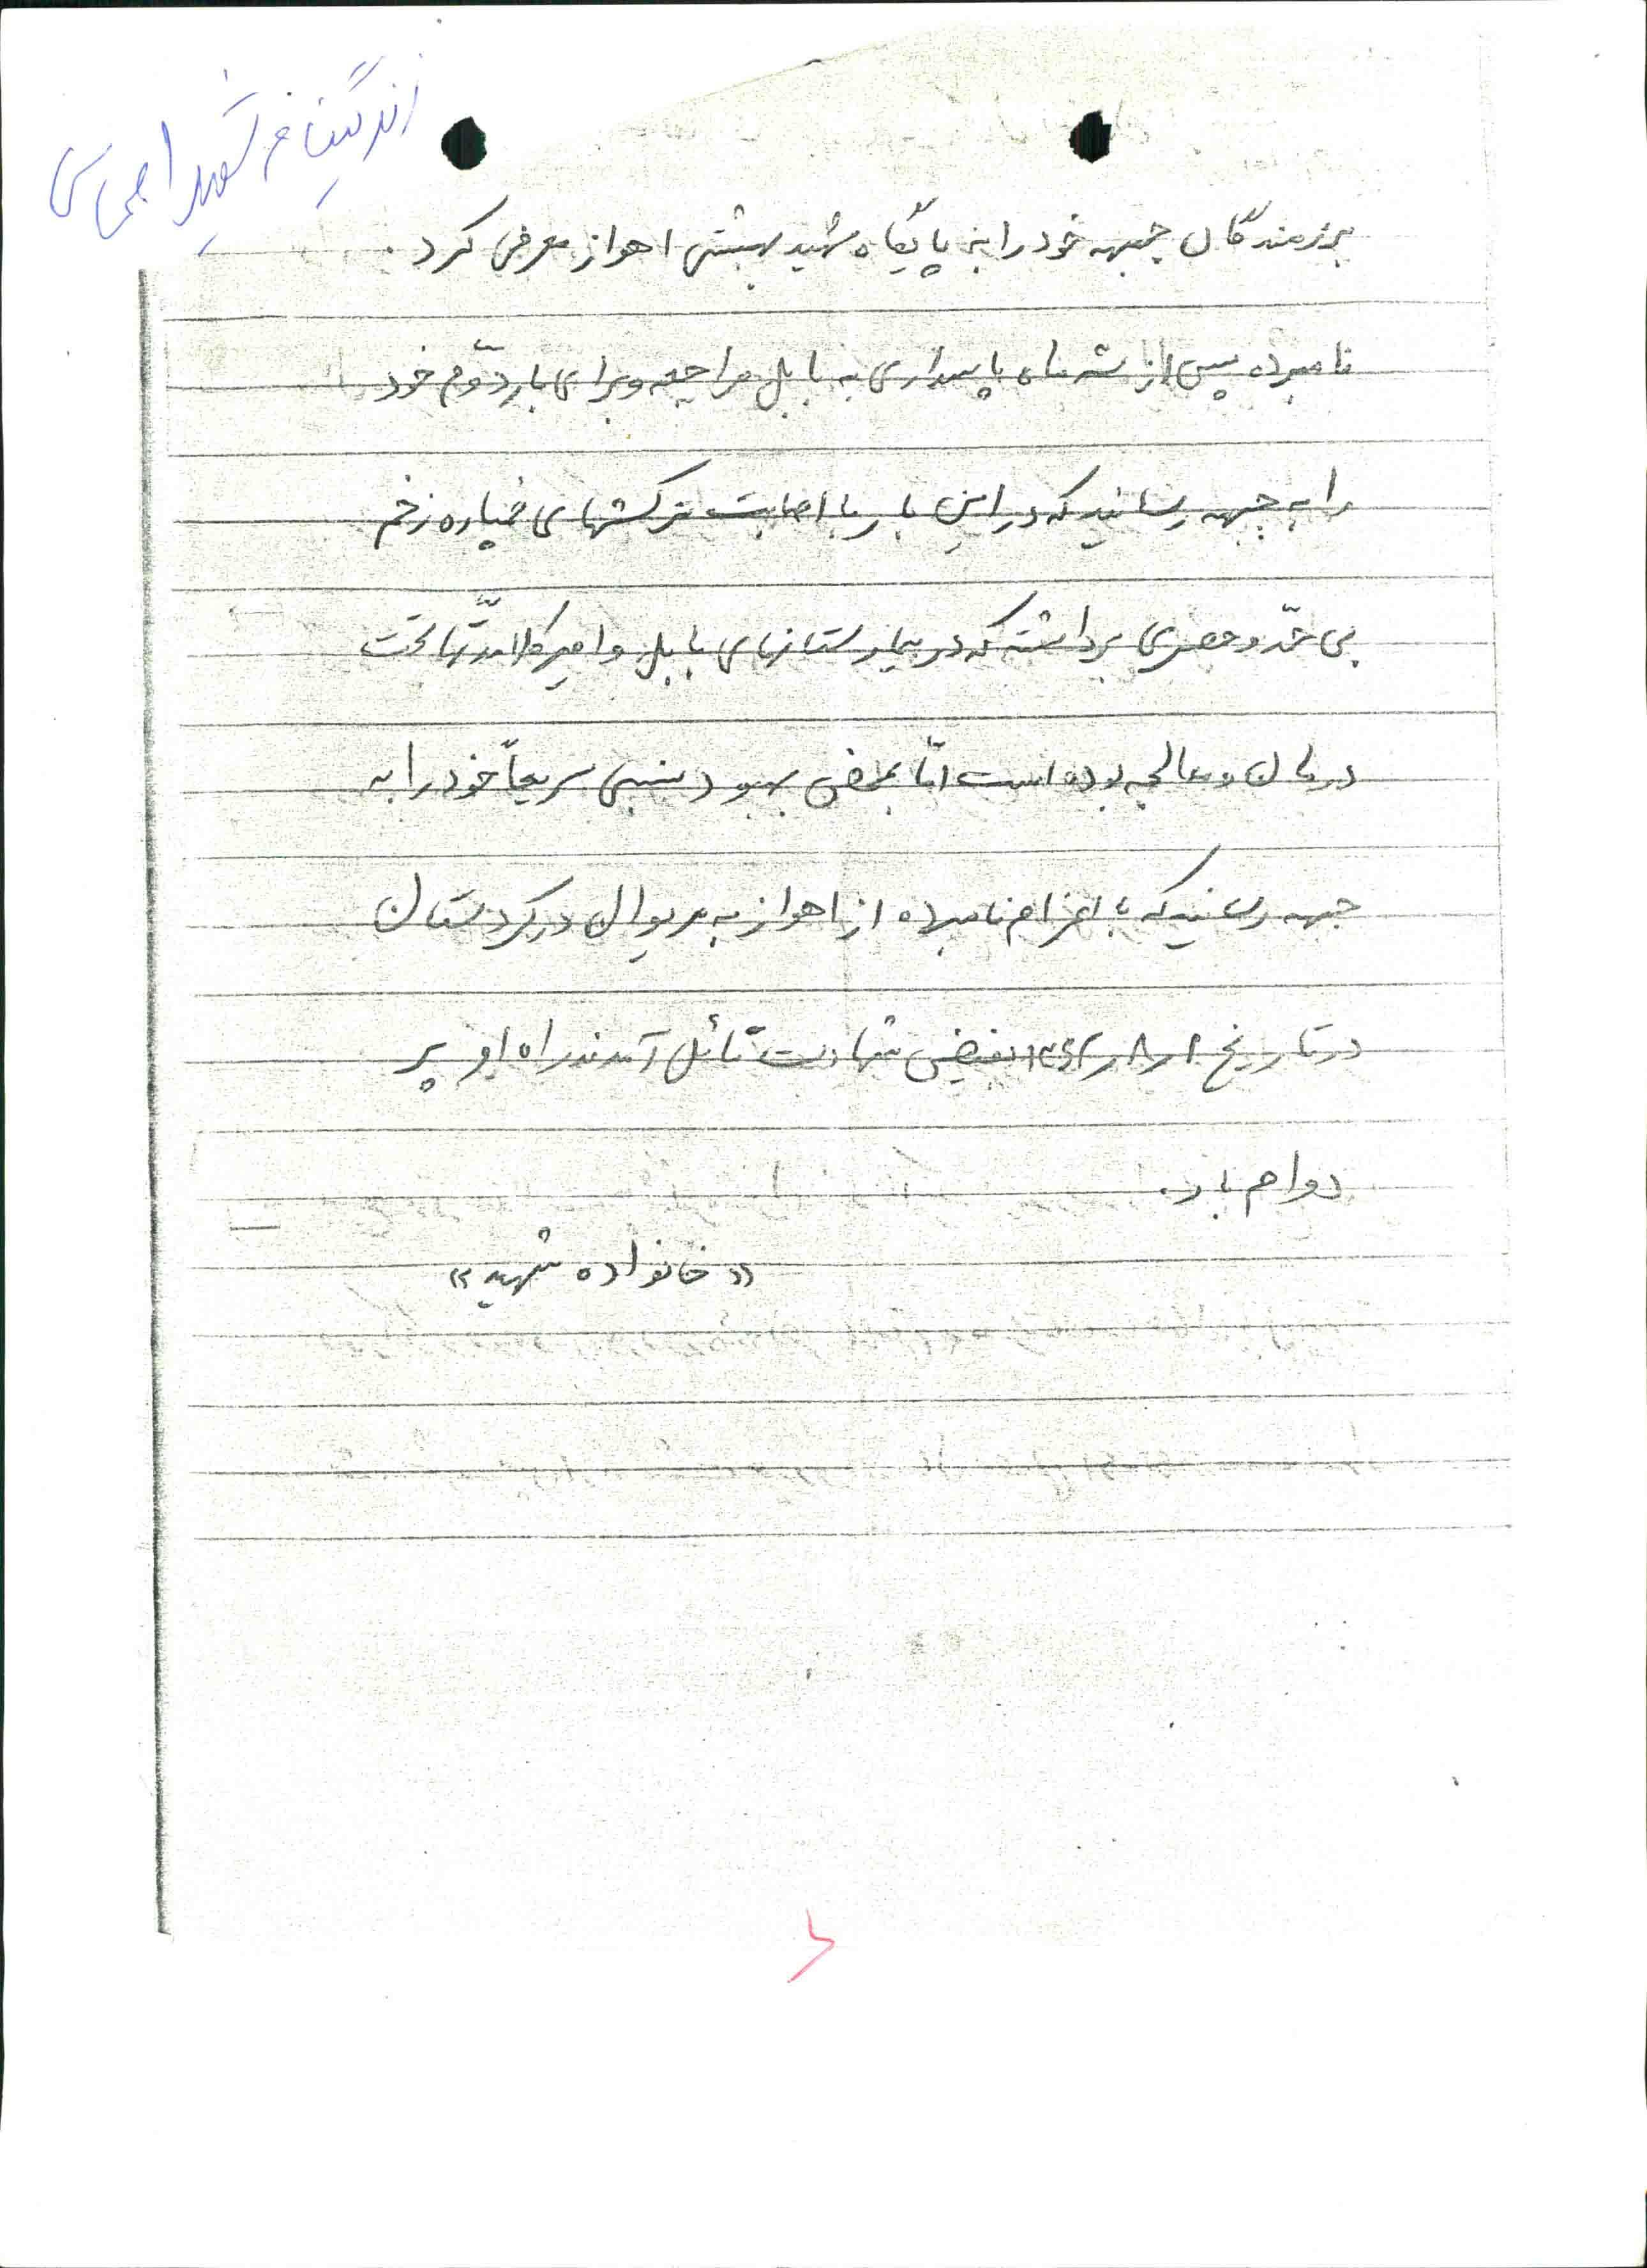 زندگینامه شهید
برزمندگان جبهه خود را به پایگاه شهید بهشتی اهواز معرفی کرد.
نامبرده پس از سه ماه پاسداری به بابل مراجعه و برای بار دوّم خود
را به جبهه رسانید که در این بار با اصابت ترکشهای خمپاره زخم
بی حدّ و حصری برداشته که در بیمارستانهای بابل و امیرکلا مدّتها تحت
درمان و معالجه بوده است امّا بمحض بهبود نسبی سریعاً خود را به
جبهه رسانید که با اعزام نامبرده از اهواز به مریوان در کردستان
در تاریخ ۱۳۶۲ بفیض شهادت نائل آمدند راه او پر
دوام باد.
«خانواده شهید»